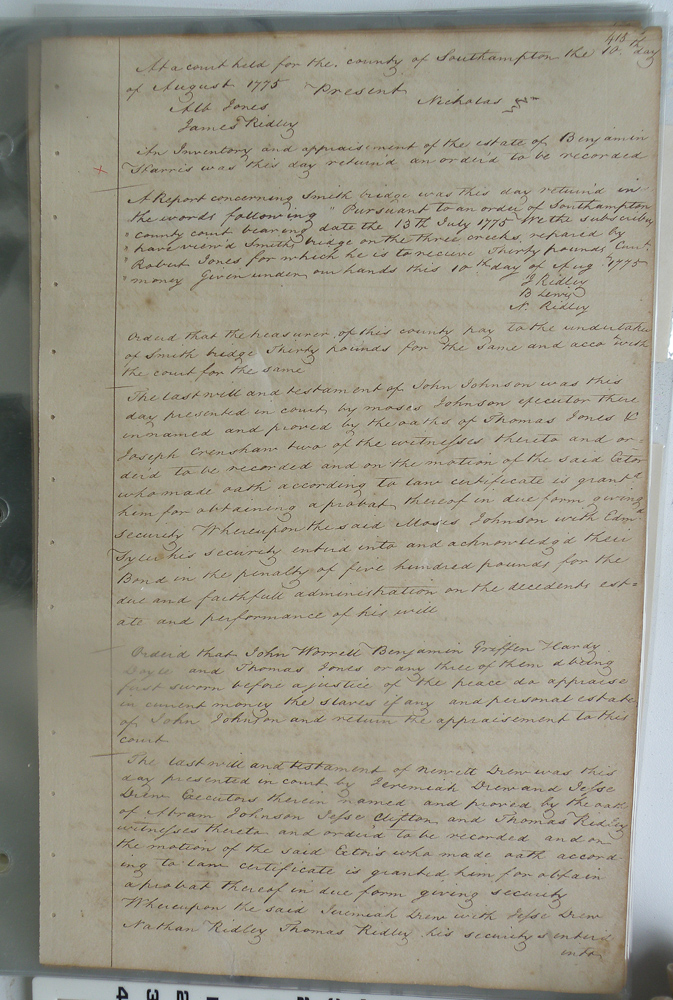 413
At a court held for the county of Southampton the 10th day
of August 1775 Present
Alb Jones Nicholas
James Ridley
An Inventory and appraisement of the estate of Benjamin
Harris was this day return'd an order'd to be recorded
A Report concerning Smith bridge was this day return'd in
the words following " Pursuant to an order of Southampton
" county court bearing date the 13th July 1775 We the subscribers
" have view'd Smiths bridge on the three creeks, repaired by
Robert Jones for which he is to recieve Thirty pounds Curt
" money Given under our hands this 10th day of Aug 1775
J Ridley
B Lewis
N. Ridley
Orderd that the treasurer of this county pay to the undertaker
of Smith bridge Thirty pounds for the same and acco with
the court for the same
The last will and testament of John Johnson was this
day presented in court by moses Johnson executor there
in named and proved by the oaths of Thomas Jones &
Joseph Crenshaw two of the witnesses thereto and or=
der'd to be recorded and on the motion of the said Extor
who made oath according to law certificate is grantd
him for obtaining a probat thereof in due form giving
security Whereupon the said Moses Johnson with Edmd
Tyler his security enterd into and acknowledgd their
Bond in the penalty of five hundred pounds for the
due and faithfull administration on the decedents est=
ate and performance of his will
Order'd that John Worrell Benjamin Griffen Hardy
Doyle and Thomas Jones or any three of them being
first sworn before a justice of the peace do appraise
in current money the slaves if any and personal estate
of John Johnson and return the appraisement to this
court
The last will and testament of Newitt Drew was this
day presented in court by Jeremiah Drew and Jesse
Drew Executors therein named and proved by the oath
of Abram Johnson Jesse Clifton and Thomas Ridley
witnesses thereto and order'd to be recorded and on
the motion of the said Extors who made oath accord
ing to law certificate is granted him for obtain
a probat thereof in due form giving security
Whereupon the said Jeremiah Drew with Jesse Drew
Nathan Ridley Thomas Ridley his securitys enterd
into